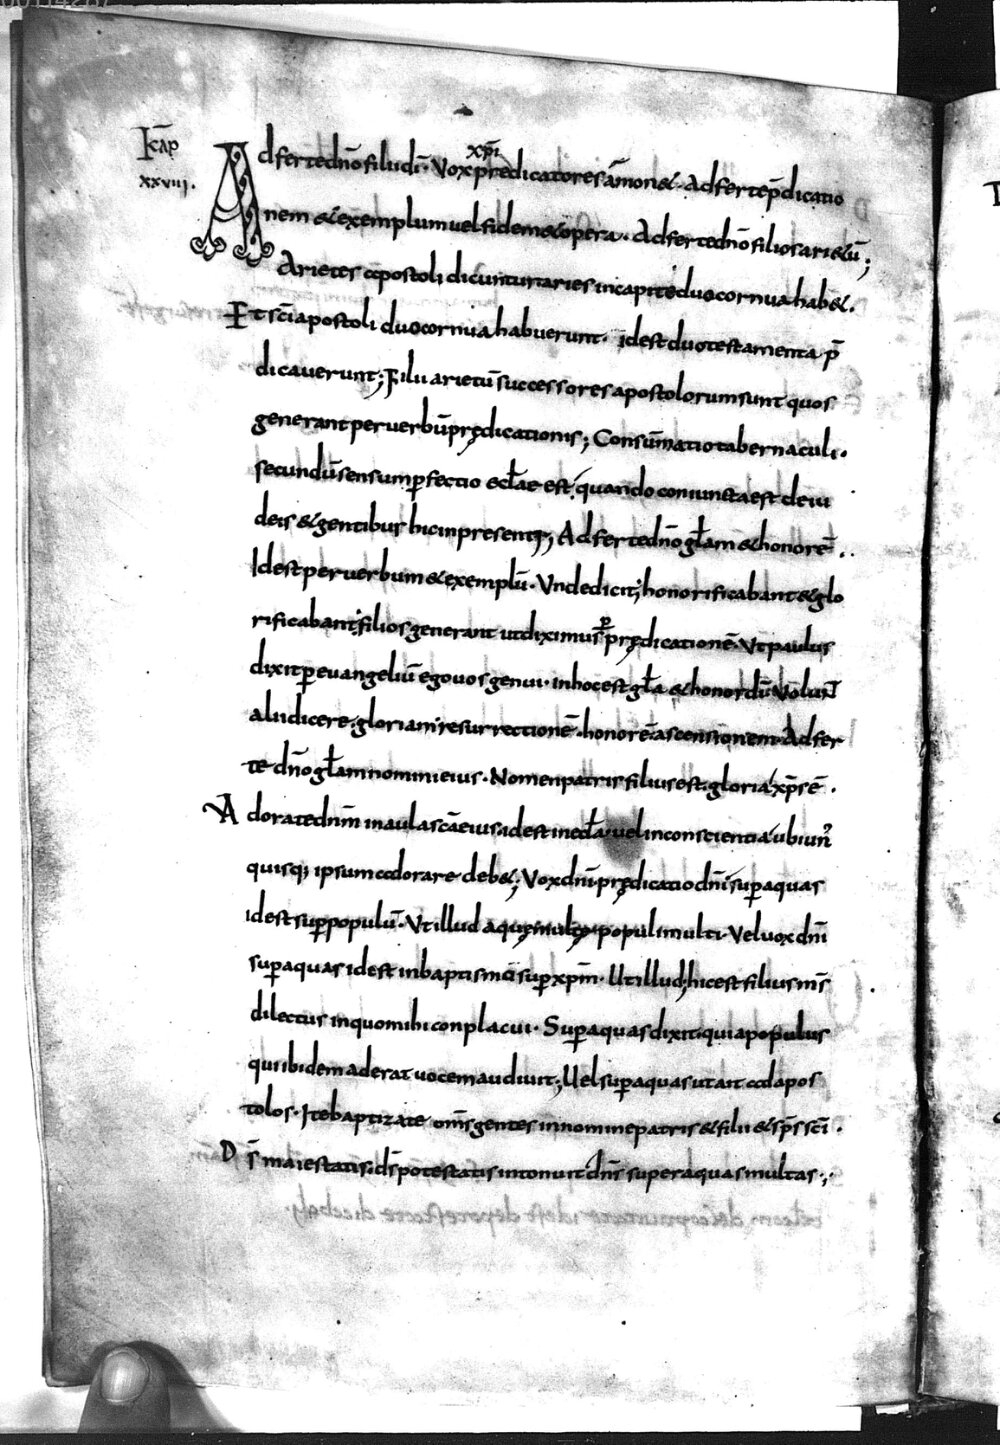 K̄ap
xxviii.
Adferte dn̄o filii dī. Vox xp̄i predicatores ām̄on&. Adferte p̄dicatio
nem & exemplum vel fidem & opera. Adferte dn̄o filios ari&ū;
Arietes apostoli dicuntur aries in capite duo cornua hab&.
Et sc̄i apostoli duo cornua habuerunt. idest duo testamenta p̄
dicaverunt; Filii arietū successores apostolorum sunt quos
generant per verbū prędicationis; Consūmatio tabernaculi.
secundū sensum perfectio eccl̄ae est, quando coniuncta est de iu
deis & gentibus hic in presenti; Adferte dn̄o gl̄am & honorē..
Idest per verbum & exemplū. Unde dicit; honorificabant & glo
rificabant; filios generant ut diximus p̱ prędicationē. Ut paulus
dixit p̱ evangeliū ego vos genui. in hoc est gl̄a & honor dū volunt̄
alii dicere. gloriam resurrectionē. honorē ascensionem. Adfer
te dn̄o gl̄am nomini eius. Nomen patris filius est. gloria xp̄s ē.
Adorate dn̄m in aula sc̄a eius. idest in eccl̄a. vel in conscientia ubi un̄
quisq; ipsum adorare deb&; Vox dn̄i prędicatio dn̄i sup̱ aquas
idest sup̱ populū. Ut illud aquę multę populi multi. Vel vox dn̄i
sup̱ aquas idest in baptismo sup̱ xp̄m. Ut illud; hic est filius m̄s
dilectus in quo mihi conplacui. Sup̱ aquas dixit. quia populus
qui ibidem aderat vocem audivit; Vel sup̱ aquas ut ait ad apos
tolos. Ite baptizate om̄s gentes in nomine patris & filii & sp̄s sc̄i.
Ds̄ maiestatis. ds̄ potestatis intonuit dn̄s super aquas multas;